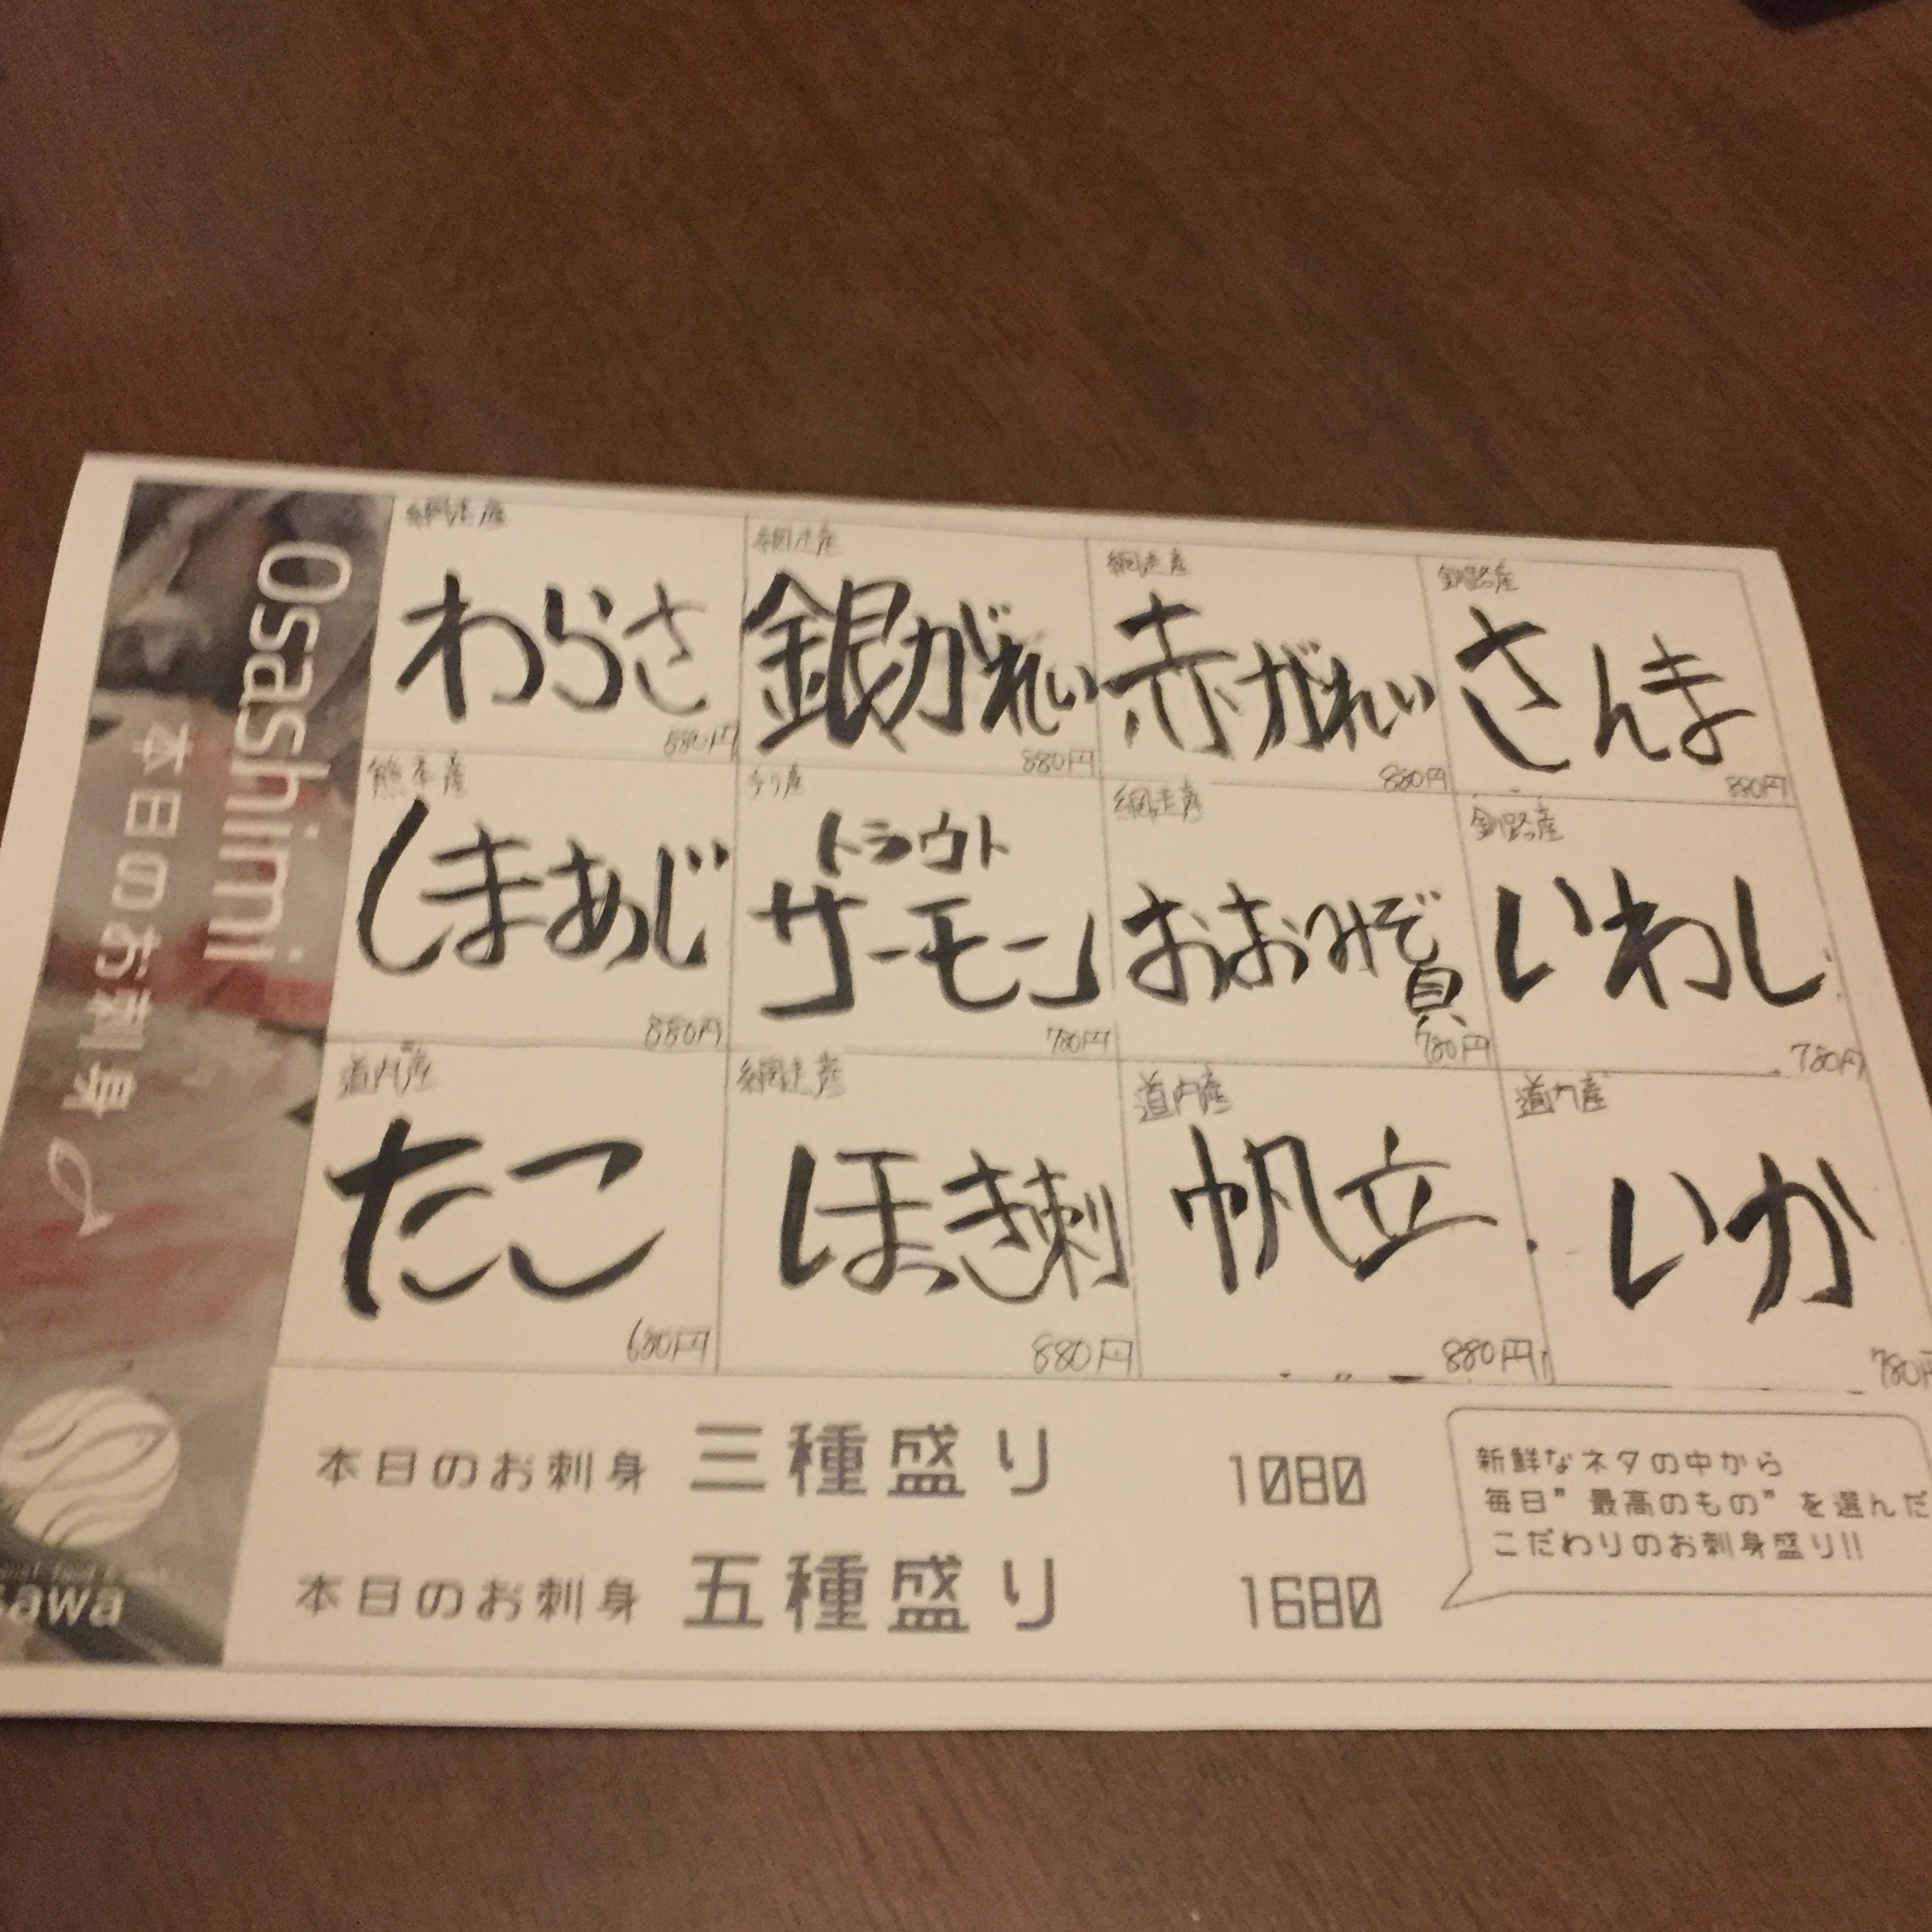 Osashimi
本日のお刺身
網走産
わらさ
880円
網走産
銀がれい
880円
網走産
赤がれい
880円
釧路産
さんま
880円
熊本産
しまあじ
880円
チリ産
トラウト
サーモン
780円
網走産
おおみぞ貝
780円
釧路産
いわし
780円
道内産
たこ
680円
網走産
ほっき刺
880円
道内産
帆立
880円
道内産
いか
780円
本日のお刺身 三種盛り 1080
本日のお刺身 五種盛り 1680
新鮮なネタの中から
毎日"最高のもの"を選んだ
こだわりのお刺身盛り!!
sawa